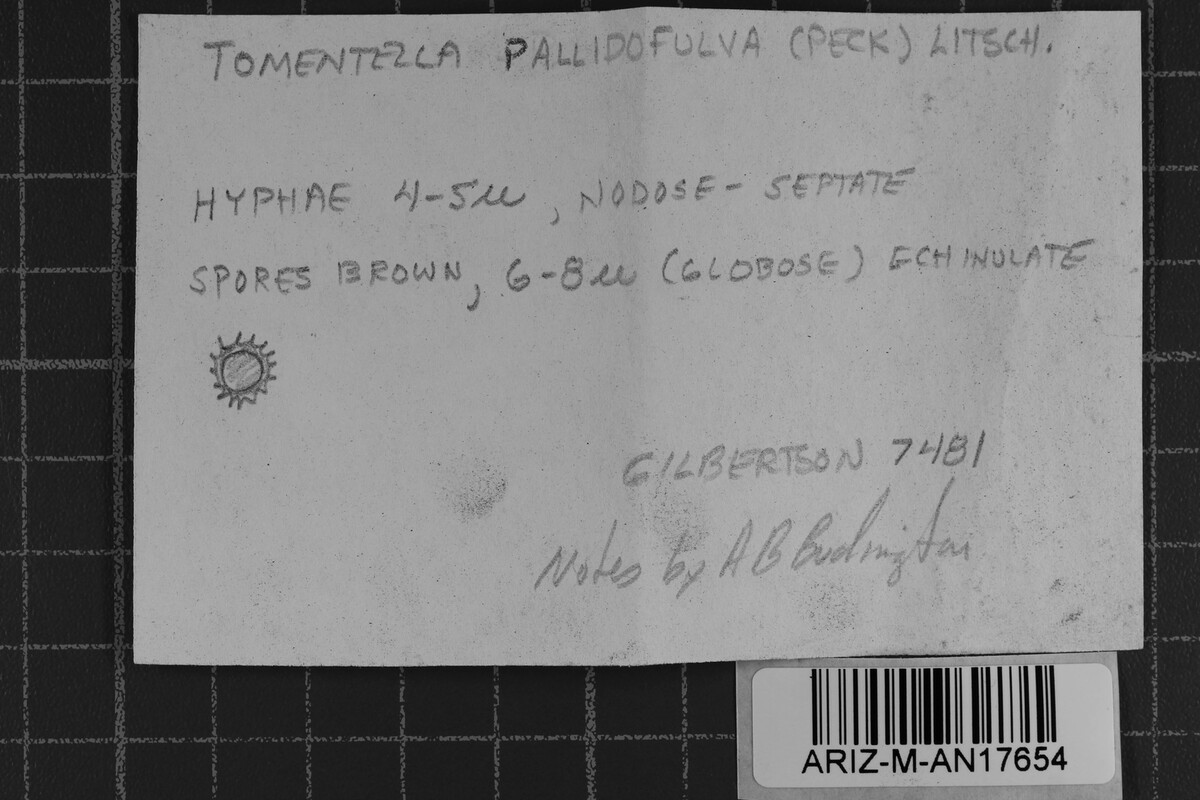 TOMENTELLA PALLIDOFULVA (PECK) LITSCH.
HYPHAE 4-5µ, NODOSE-SEPTATE
SPORES BROWN, 6-8µ (GLOBOSE) ECHINULATE
GILBERTSON 7481
Notes by A B Budington
ARIZ-M-AN17654